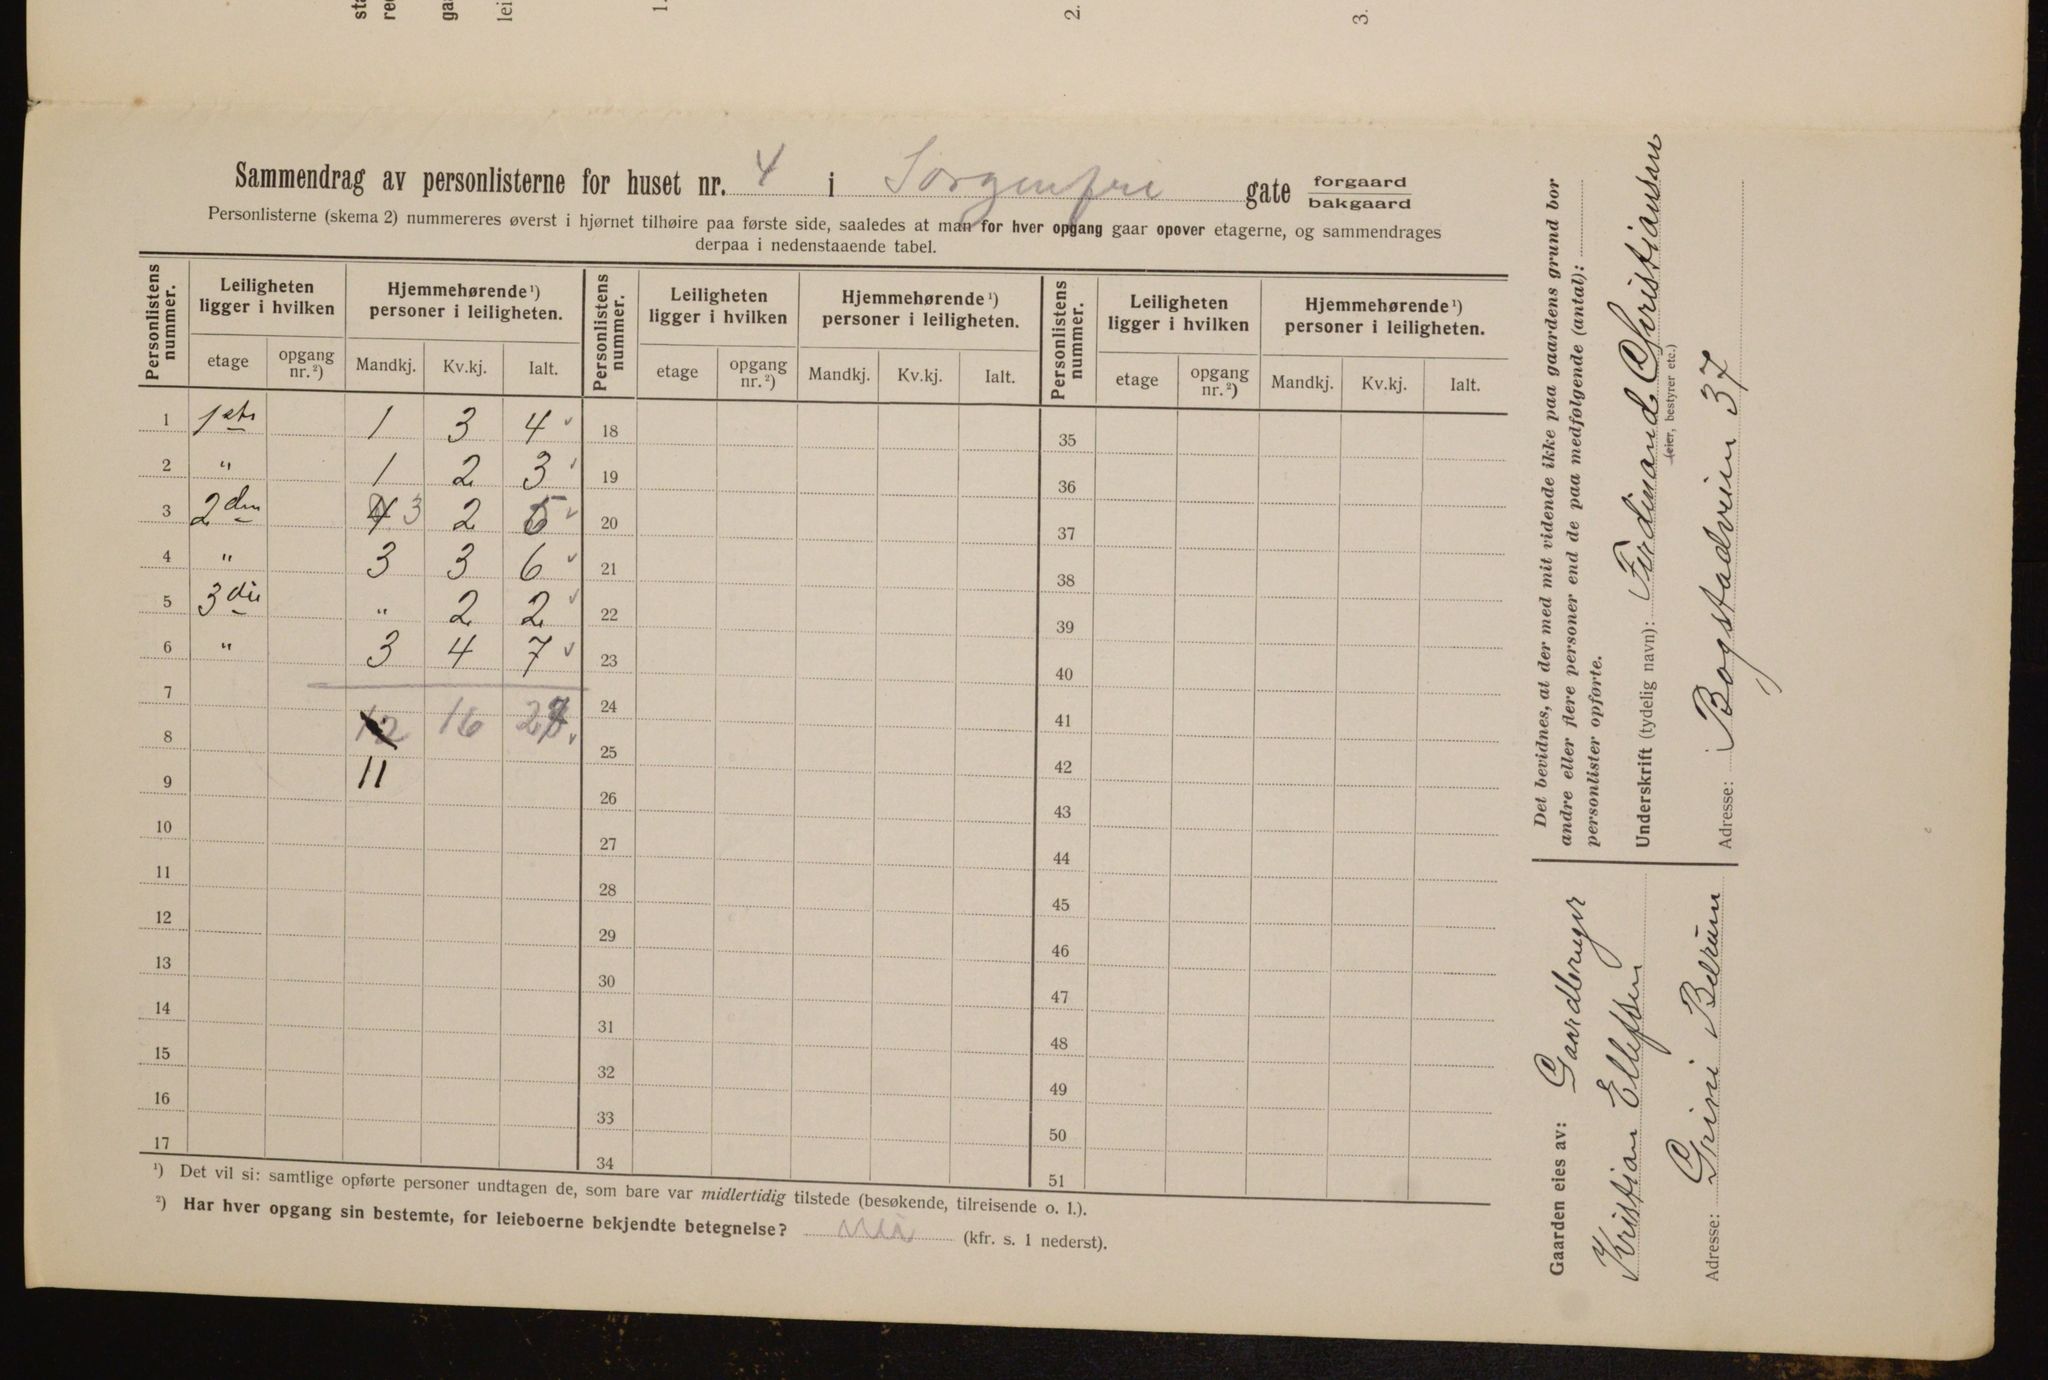 Sammendrag av personlisterne for huset nr. 4 i Sorgenfri gate forgaard bakgaard
Personlisterne (skema 2) nummereres øverst i hjørnet tilhøire paa første side, saaledes at man for hver opgang gaar opover etagerne, og sammendrages
derpaa i nedenstaaende tabel.
Personlistens nummer. Leiligheten ligger i hvilken Hjemmehørende ¹) personer i leiligheten. Personlistens nummer. Leiligheten ligger i hvilken Hjemmehørende ¹) personer i leiligheten. Personlistens nummer. Leiligheten ligger i hvilken Hjemmehørende ¹) personer i leiligheten.
etage opgang nr. ²) Mandkj. Kv.kj. Ialt. etage opgang nr. ²) Mandkj. Kv.kj. Ialt. etage opgang nr. ²) Mandkj. Kv.kj. Ialt.
1 1ste 1 3 4 18 35
2 " 1 2 3 19 36
3 2den 4 3 2 5 20 37
4 " 3 3 6 21 38
5 3die " 2 2 22 39
6 " 3 4 7 23 40
7 24 41
8 12 16 27 25 42
9 11 26 43
10 27 44
11 28 45
12 29 46
13 30 47
14 31 48
15 32 49
16 33 50
17 34 51
¹) Det vil si: samtlige opførte personer undtagen de, som bare var midlertidig tilstede (besøkende, tilreisende o. l.).
²) Har hver opgang sin bestemte, for leieboerne bekjendte betegnelse? (kfr. s. 1 nederst).
Det bevidnes, at der med mit vidende ikke paa gaardens grund bor
andre eller flere personer end de paa medfølgende (antal):
personlister opførte.
Underskrift (tydelig navn): Ferdinand Christiansen
(eier, bestyrer etc.)
Adresse: Bogstadveien 37
Gaarden eies av: Gaardbruger
Kristian Ellefsen
Adresse: Grini Bærum
1.
2.
3.